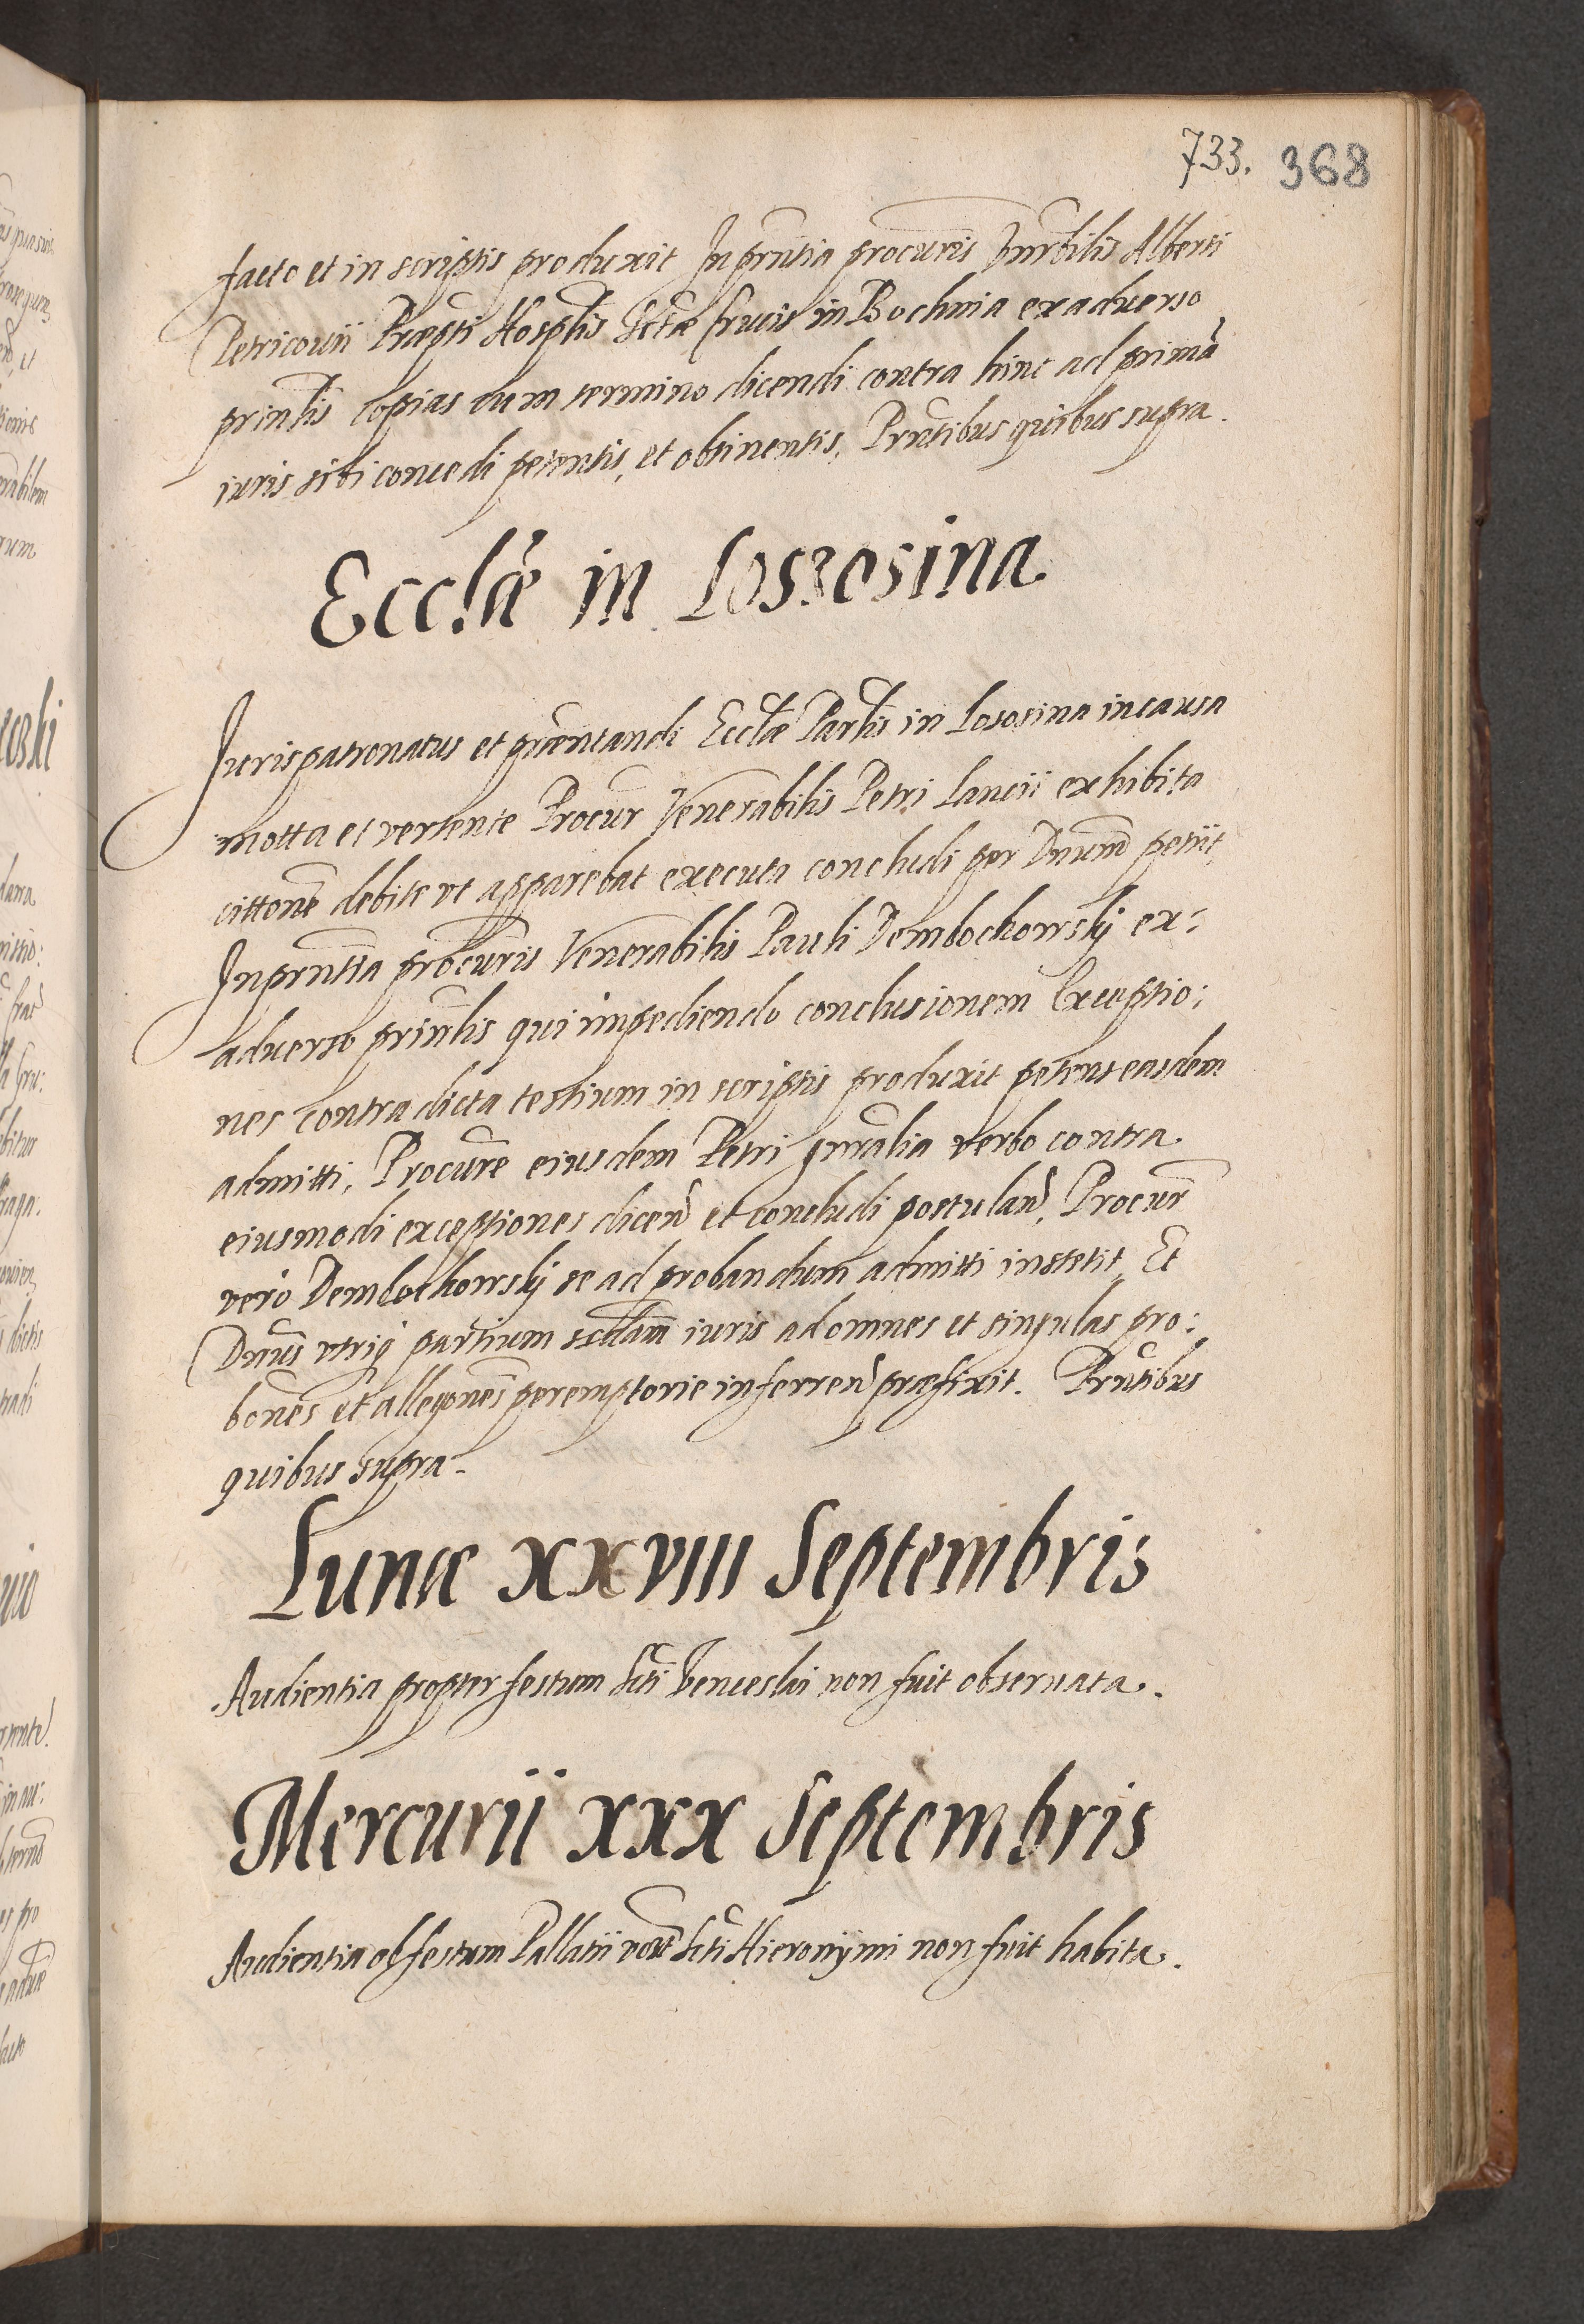 733. 368
facto et in scriptis produxit In prñtia procuris Vnrbilis Alberti
Petricovii Præpti Hosplis Sctæ Crucis in Bochnia exaduerso
prinlis Copias cum termino dicendi contra hinc ad primã
iuris sibi concedi petentis, et obtinentis, Prñtibus quibus supra.
Ecclæ in Loszosina
Jurispatronatus et præntandi Ecclæ Parlis in Lososina in causa
motta et vertente Procur Venerabilis Petri Lancii exhibita
cittonẽ debite vt apparebat executa concludi per Dnum petiit,
In prñtia procuris Venerabilis Pauli Dembochowskÿ ex:
aduerso prinlis qui impediendo conclusionem Exceptio:
nes contra dicta testium in scriptis produxit petens easdem
admitti, Procure eiusdem Petri gnralia verbo contra
eiusmodi exceptiones dicen̄ et concludi postulan̄, Procur
vero Dembochowskÿ se ad probandum admitti institit, Et
Dnus vtriq partium scdam iuris ad omnes et singulas pro:
bones et allegones peremptorie inferren̄ præfixit. Prñtibus
quibus supra.
Lunæ XXVIII Septembris
Audientia propter festum Scti Venceslai non fuit obseruata.
Mercurii XXX Septembris
Audientia ob festum Pallatii Scti Hieronÿmi non fuit habita.